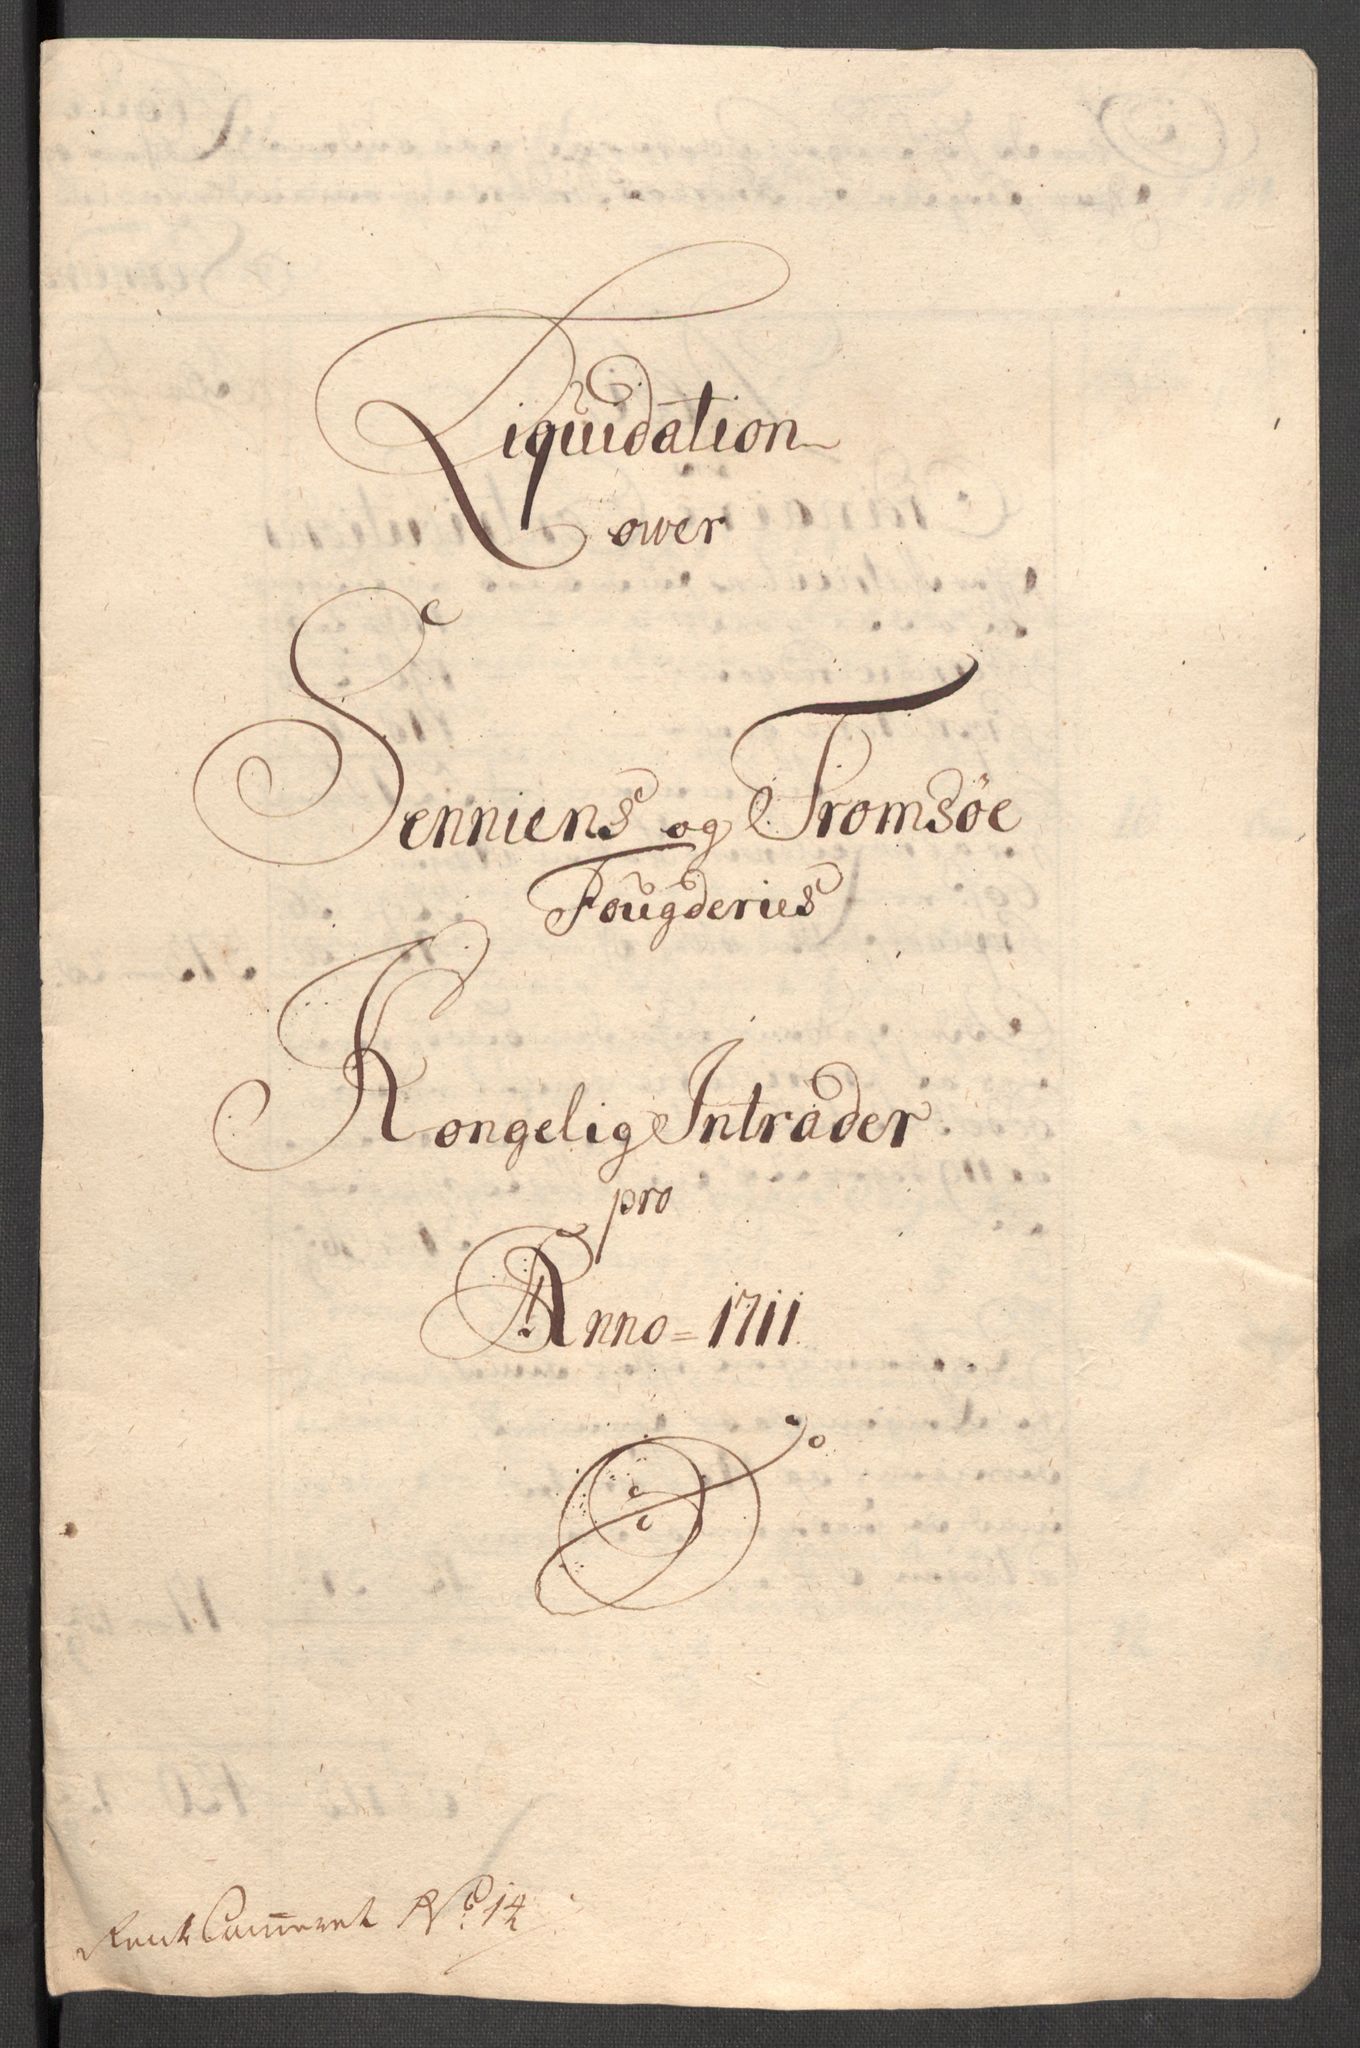 Liquidation
ower
Senniens og Tromsøe
Fougderies
Kongelig Intrader
pro
Anno = 1711
RentCam̅eret No. 14